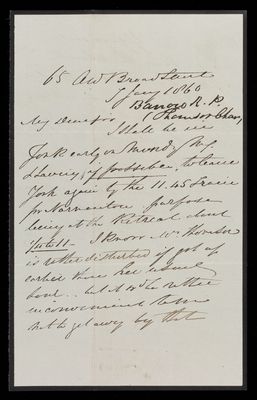 65 Old Broad Street
7 Jany 1860
Barrow R. P.
(Thomson Chas)
My Dear Sir
I shall be in
York early on Monday Mg
& having, if possible, to leave
York again by the 11.45 train
for Normanton, purpose
being at the Retreat about
I know Mr Thomson
is rather disturbed if got up
earlier than her usual
hour - but it wd be rather
inconvenient to me
not to get away by that